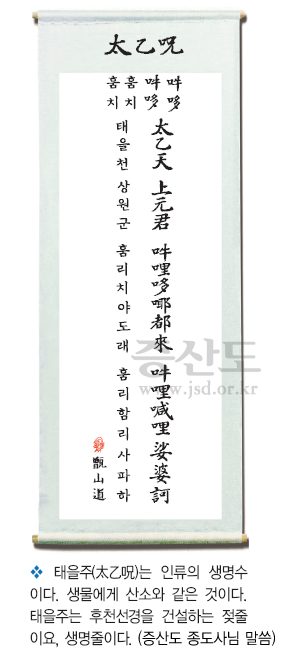 太乙呪
吽哆 吽哆
훔치 훔치
太乙天 上元君 吽哩哆㖿都來 吽哩喊哩娑婆訶
태을천 상원군 훔리치야도래 훔리함리사파하
甑山道
증산도
www.jsd.or.kr
❖ 태을주(太乙呪)는 인류의 생명수
이다. 생물에게 산소와 같은 것이다.
태을주는 후천선경을 건설하는 젖줄
이요, 생명줄이다. (증산도 종도사님 말씀)